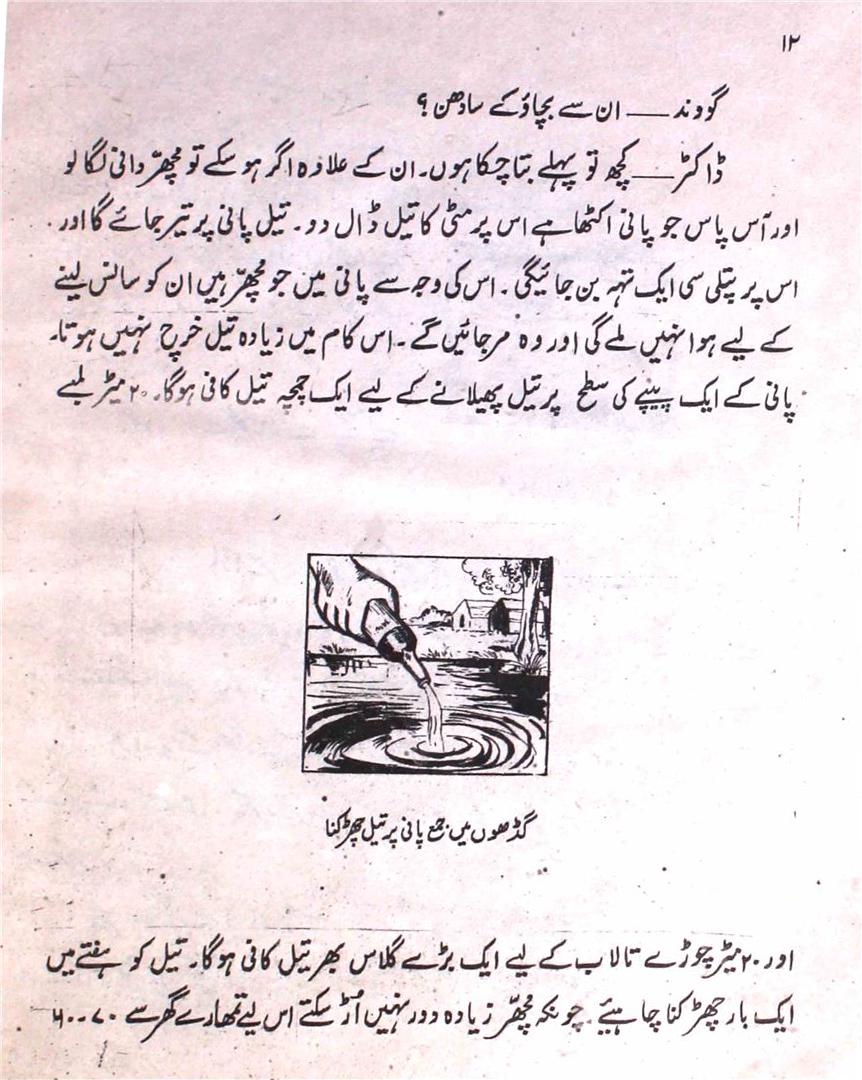 ۱۲
گووند ـــــ ان سے بچاؤ کے سادھن ؟
ڈاکٹر ـــــ کچھ تو پہلے بتا چکا ہوں۔ ان کے علاوہ اگر ہو سکے تو مچھّر دانی لگا لو
اور آس پاس جو پانی اکٹھا ہے اس پر مٹی کا تیل ڈال دو۔ تیل پانی پر تیر جائے گا اور
اس پر پتلی سی ایک تہہ بن جائیگی۔ اس کی وجہ سے پانی میں جو مچھّر ہیں ان کو سانس لینے
کے لیے ہوا نہیں ملے گی اور وہ مر جائیں گے۔ اس کام میں زیادہ تیل خرچ نہیں ہوتا۔
پانی کے ایک پیپے کی سطح پر تیل پھیلانے کے لیے ایک چمچہ تیل کافی ہوگا۔ ۲۰ میٹر لمبے
گڈھوں میں جمع پانی پر تیل چھڑکنا
اور ۲۰ میٹر چوڑے تالاب کے لیے ایک بڑے گلاس بھر تیل کافی ہوگا۔ تیل کو ہفتے میں
ایک بار چھڑکنا چاہیئے۔ چونکہ مچھّر زیادہ دور نہیں اُڑ سکتے اس لیے تمھارے گھر سے ۷۰۔۶۰